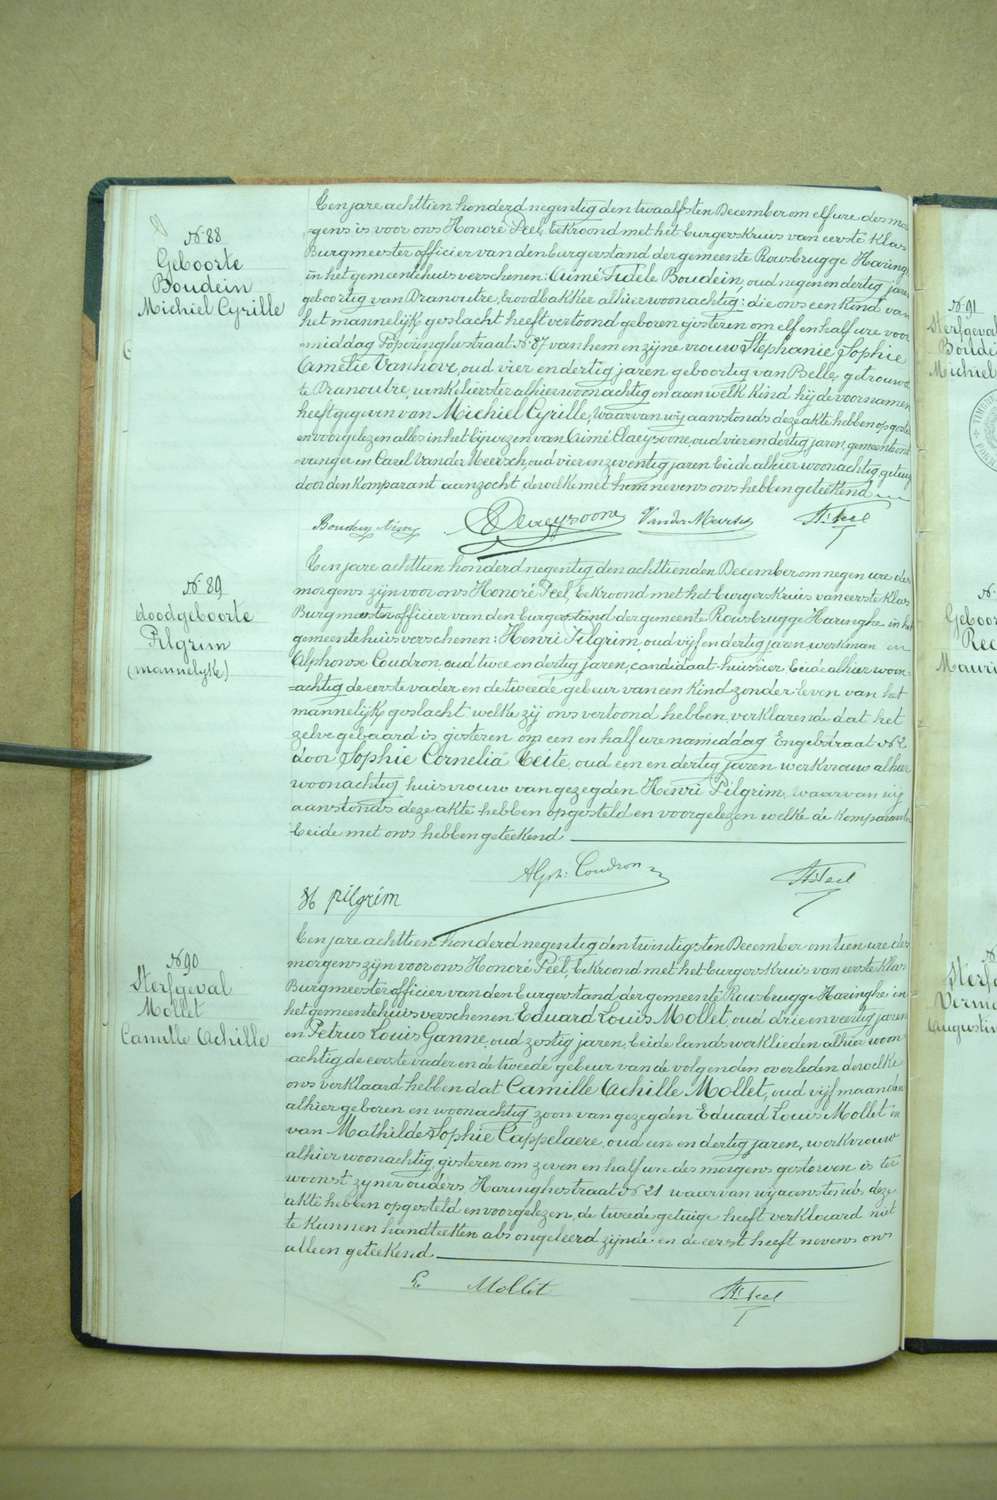 N. 88
Geboorte
Boudein
Michiel Cyrille
Ten jare achttien honderd negentig den twaalfsten December om elf ure des mor
=gens is voor ons Honoré Peel, bekroond met het burgerskruis van eerste klas
Burgmeester officier van den burgerstand der gemeente Rousbrugge Haringhe
in het gemeentehuis verschenen: Cumé Fidele Boudein, oud negen en dertig jaren
geboortig van Dranoutre, broodbakker alhier woonachtig: die ons een kind van
het mannelijk geslacht heeft vertoond geboren gisteren om elf en half ure voor
=middag Poperinghestraat N. 87 van hem en zijne vrouw Stephanie Sophie
Amelie Vanhove, oud vier en dertig jaren geboortig van Belle, getrouwd
te Dranoutre, winkelierster alhier woonachtig en aan welk kind hij de voornamen
heeft gegeven van Michiel Cyrille, Waarvan wij aanstonds deze akte hebben opgesteld
en voorgelezen alles in het bijwezen van Cumé Claeysoone, oud vier en dertig jaren, gemeente ont
=vanger en Carel Van der Meersch, oud vier en zeventig jaren beide alhier woonachtig getuig
door den komparant aanzocht dewelke met hem nevens ons hebben geteekend
Boudein
Claeysoone
Van der Meersch
H. Peel
N. 89
doodgeboorte
Pilgrim
(mannelijk)
Ten jare achttien honderd negentig den achttienden December om negen ure des
morgens zijn voor ons Honoré Peel, bekroond met het burgerskruis van eerste klas
Burgmeester officier van den burgerstand der gemeente Rousbrugge Haringhe in het
gemeentehuis verschenen: Henri Pilgrim, oud vijf en dertig jaren werkman en
Alphonse Coudron, oud twee en dertig jaren, candidaat-huissier, beide alhier woon=
=achtig de eerste vader en de tweede gebeur van een kind zonder leven van het
mannelijk geslacht welke zij ons vertoond hebben, verklarende dat het
zelve gebaard is gisteren om een en half ure namiddag Engelstraat N. 2
door Sophie Cornelia Teite, oud een en dertig jaren werkvrouw alhier
woonachtig huisvrouw van gezegden Henri Pilgrim. Waarvan wij
aanstonds deze akte hebben opgesteld en voorgelezen welke de komparanten
beide met ons hebben geteekend
Alph. Coudron
H. Peel
H pilgrim
N. 90
Sterfgeval
Mollet
Camille Achille
Ten jare achttien honderd negentig den twintigsten December om tien ure des
morgens zijn voor ons Honoré Peel, bekroond met het burgerskruis van eerste klas
Burgmeester officier van den Burgerstand der gemeente Rousbrugge Haringhe in
het gemeentehuis verschenen Eduard Louis Mollet, oud drie en veertig jaren
en Petrus Louis Ganne, oud zestig jaren, beide landswerklieden alhier woon
achtig de eerste vader en de tweede gebeur van de volgenden overleden dewelke
ons verklaard hebben dat Camille Achille Mollet, oud vijf maanden
alhier geboren en woonachtig zoon van gezegden Eduard Louis Mollet en
van Mathilde Sophie Cappelaere, oud een en dertig jaren, werkvrouw
alhier woonachtig gisteren om zeven en half ure des morgens gestorven is ter
woonst zijner ouders Haringhestraat N. 21 waarvan wij aanstonds deze
akte hebben opgesteld en voorgelezen, de tweede getuige heeft verklaard niet
te kunnen handteeken als ongeleerd zijnde en de eerst heeft nevens ons
alleen geteekend
Mollet
H. Peel
N. 91
Sterfgeval
Michiel
Augustin